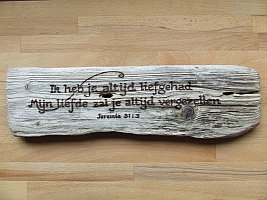 Ik heb je altijd liefgehad
Mijn liefde zal je altijd vergezellen
Jeremia 31:3